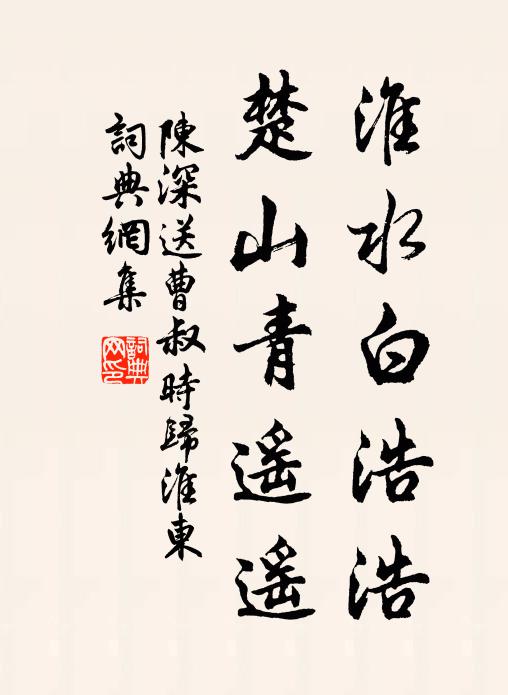 淮水白浩浩
楚山青遥遥
陳深送曹叔時歸淮東
詞典網集
詞典網印